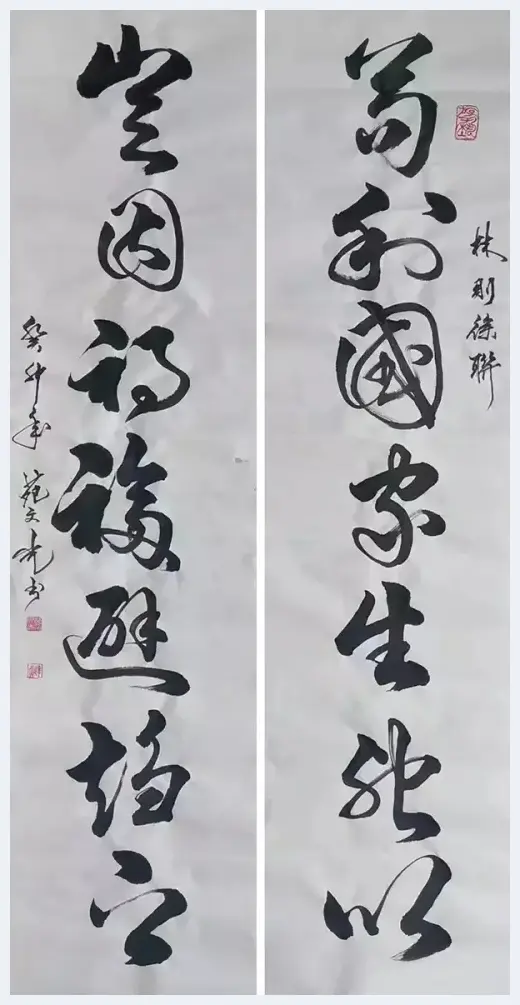 林則徐聯
苟利國家生死以
豈因禍福避趨之
癸卯年 范文亮书